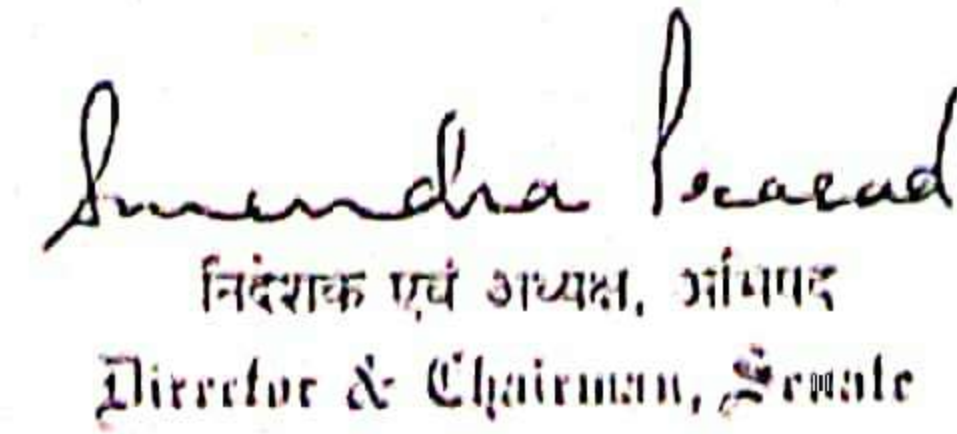 Surendra Prasad
निदेशक एवं अध्यक्ष, अधिषद
Director & Chairman, Senate